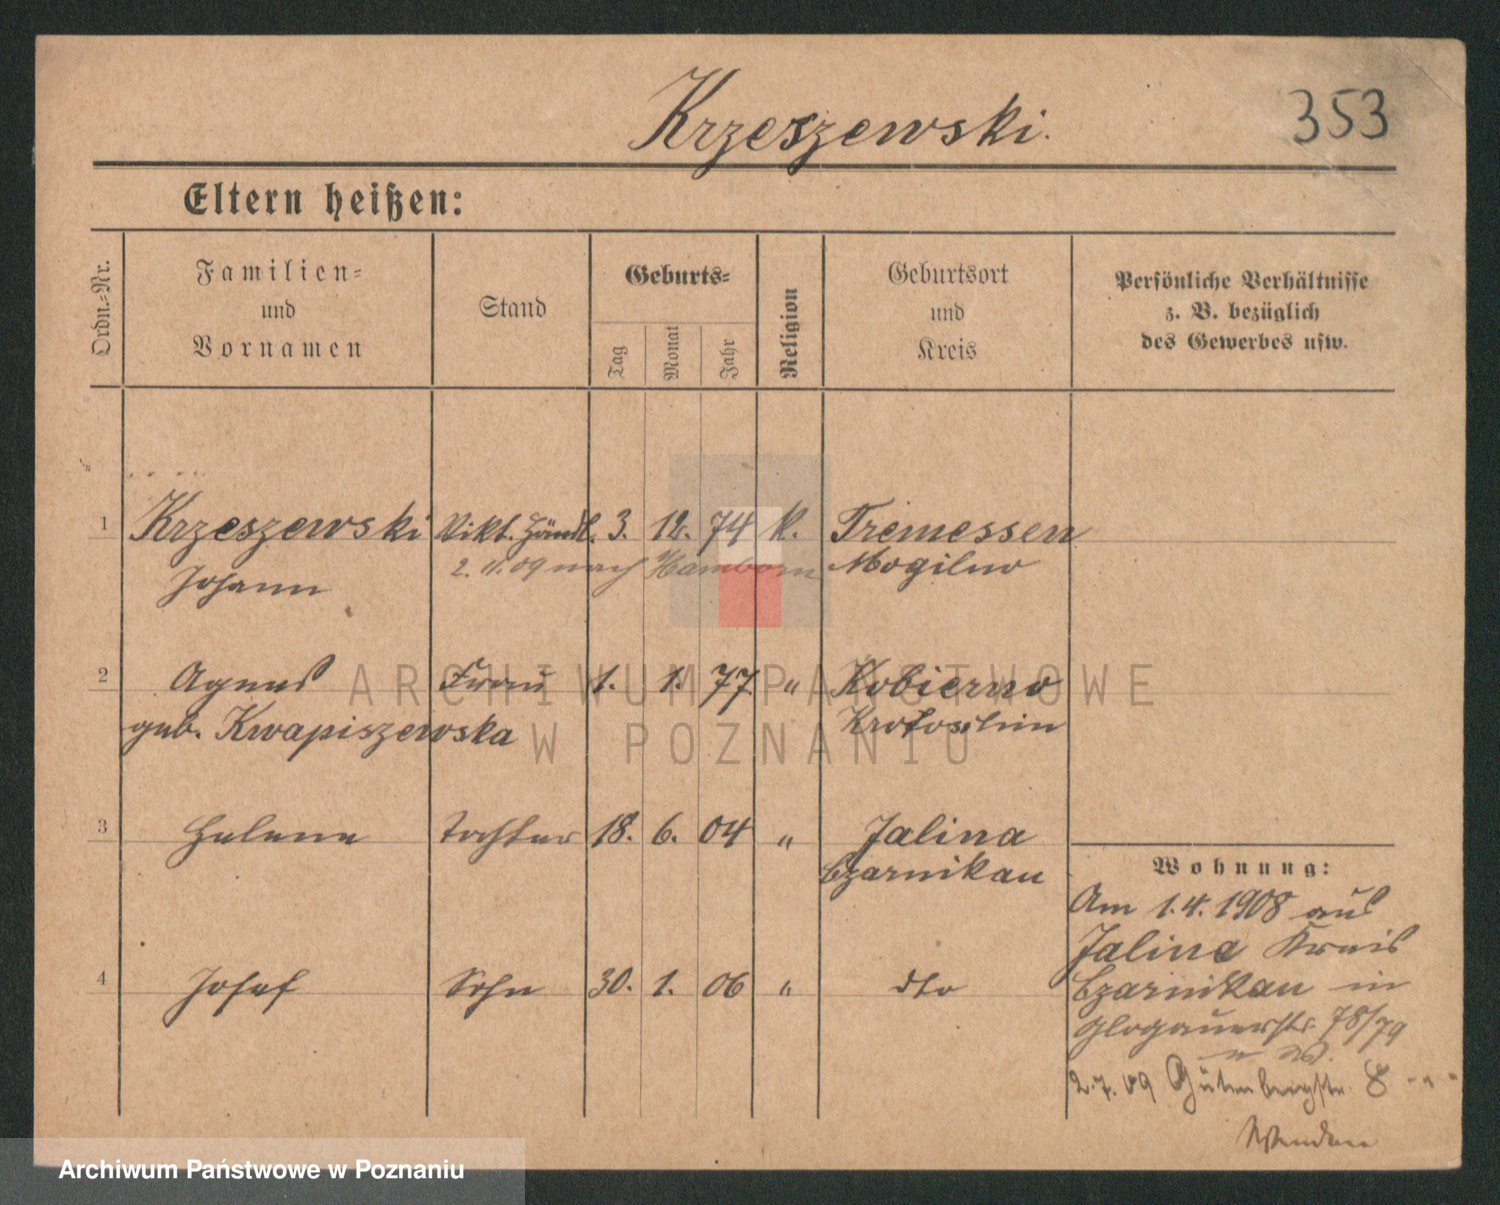 Krzeszewski.
353
Eltern heißen:
Ordn.=Nr.
Familien=
und
Vornamen
Stand
Geburts=
Tag
Monat
Jahr
Religion
Geburtsort
und
Kreis
Persönliche Verhältnisse
z. B. bezüglich
des Gewerbes usw.
1 Krzeszewski Vikt. Händl. 3. 12. 74 k. Tremessen
Johann 2. 11. 09 nach Hamborn Mogilno
2 Agnes Frau 1. 1. 77 " Kobierno
geb. Kwapiszewska Krotoschin
3 Helene Tochter 18. 6. 04 " Jalina
Czarnikau
4 Josef Sohn 30. 1. 06 " dto
Wohnung:
Am 1.4.1908 aus
Jaline Kreis
Czarnikau in
Glogauerstr. 78/79
2.7.09 Gutenbergstr. 8
ARCHIWUM PAŃSTWOWE
W POZNANIU
Archiwum Państwowe w Poznaniu